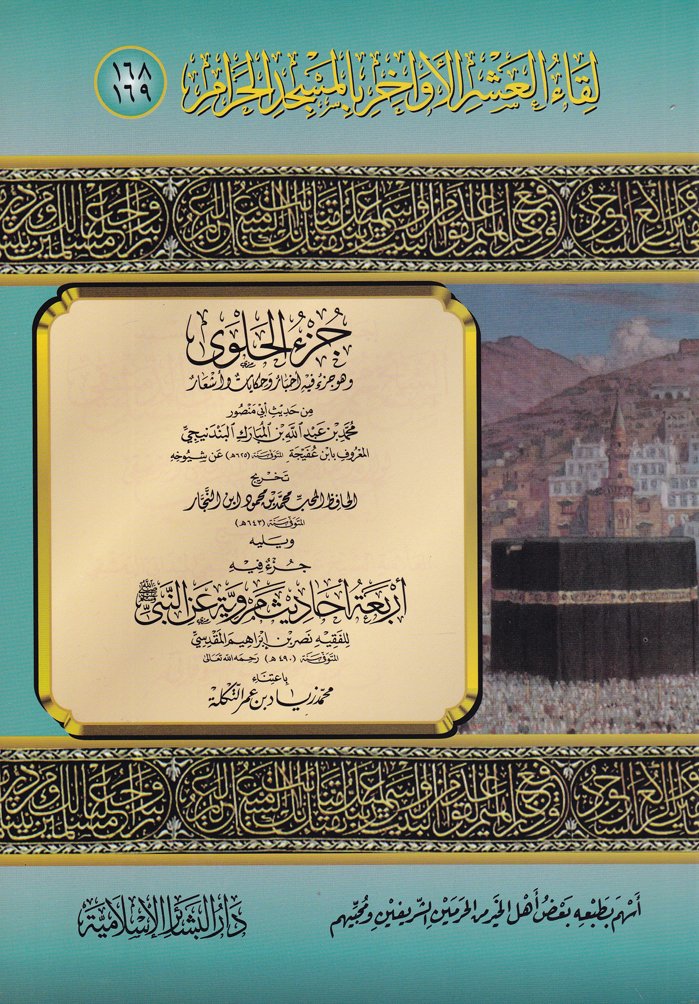 لِقَاءُ العَشْرِ الأَوَاخِرِ بِالمَسْجِدِ الحَرَامِ
١٦٨
١٦٩
جُزْءُ الحَلْوَى
وهو جزء فيه أخبار وحكايات وأشعار
من حديث أبي منصور
محمد بن عبد الله بن المبارك البندنيجي
المعروف بابن عفيجة المتوفى سنة (٦٢٥هـ) عن شيوخه
تخريج
الحافظ المحب محمد بن محمود ابن النجار
المتوفى سنة (٦٤٣هـ)
ويليه
جزء فيه
أربعة أحاديث مروية عن النبي ﷺ
للفقيه نصر بن إبراهيم المقدسي
المتوفى سنة (٤٩٠هـ) رحمه الله تعالى
باعتناء
محمد زياد بن عمر التكلة
أسهم بطبعه بعض أهل الخير من الحرمين الشريفين ومحبيهم
دار البشائر الإسلامية